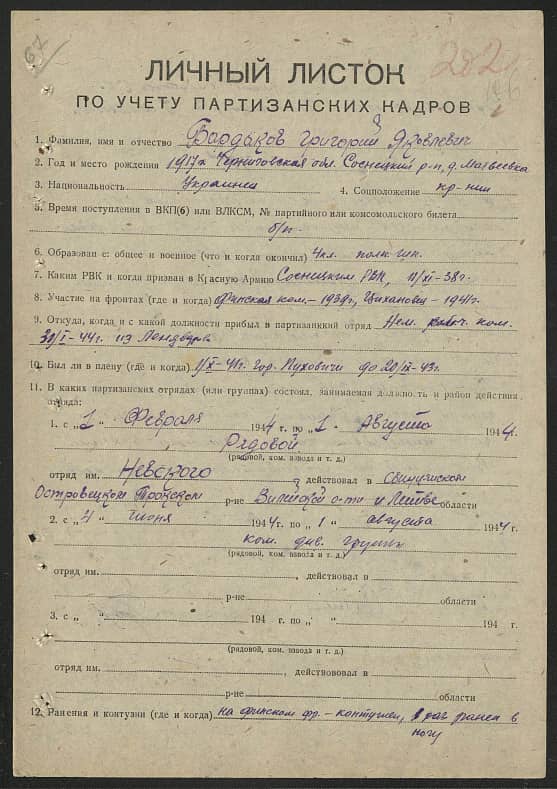 67
282
ЛИЧНЫЙ ЛИСТОК
ПО УЧЕТУ ПАРТИЗАНСКИХ КАДРОВ
1. Фамилия, имя и отчество Бардаков Григорий Яковлевич
2. Год и место рождения 1917г. Черниговская обл. Сосницкий р-н, д. Матвеевка
3. Национальность Украинец 4. Соцположение кр-нин
5. Время поступления в ВКП(б) или ВЛКСМ, № партийного или комсомольского билета
б/п
6. Образование: общее и военное (что и когда окончил) 4 кл. полк. шк.
7. Каким РВК и когда призван в Красную Армию Сосницким РВК, 11/XI-38г.
8. Участие на фронтах (где и когда) Финская ком.-1939г., Цихановец-1941г.
9. Откуда, когда и с какой должности прибыл в партизанский отряд Нем. ком.
30/I-44г. из
10. Был ли в плену (где и когда) 1/X-41г. гор. Пуховичи до 20/IX-43г.
11. В каких партизанских отрядах (или группах) состоял, занимаемая должность и район действия отряда:
1. с „1 “ Февраля 1944г. по „1 “ Августа 1944г.
Рядовой
(рядовой, ком. взвода и т. д.)
отряд им. Невского, действовал в Свирском
Островецком Трокском р-не Вилейской о-ти и Литве области
2. с „4 “ июня 1944г. по „1 “ августа 1944г
ком. див. группы
(рядовой, ком. взвода и т. д.)
отряд им. , действовал в
р-не области
3. с „ “ 194 г. по „ “ 194 г.
(рядовой, ком. взвода и т. д.)
отряд им. , действовал в
р-не области
12. Ранения и контузии (где и когда) на финском фр. - контужен, 1 раз ранен в
ногу